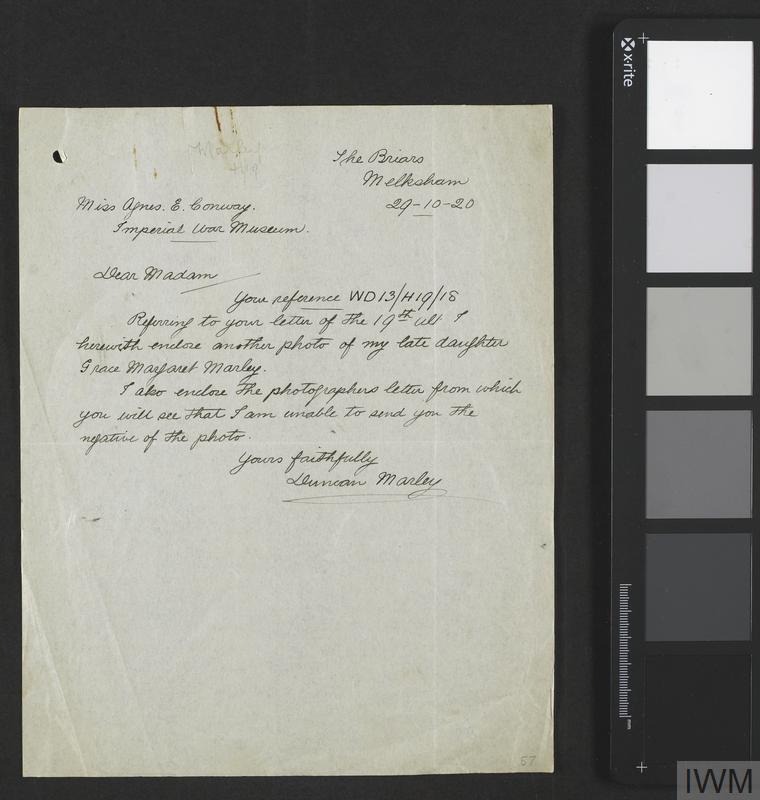 The Briars
Melksham
29-10-20
Miss Agnes. E. Conway.
Imperial War Museum.
Dear Madam
Your reference WD13/H19/18
Referring to your letter of the 19th ult I
herewith enclose another photo of my late daughter
Grace Margaret Marley.
I also enclose the photographers letter from which
you will see that I am unable to send you the
negative of the photo.
Yours faithfully
Duncan Marley
57
x-rite
mm
IWM